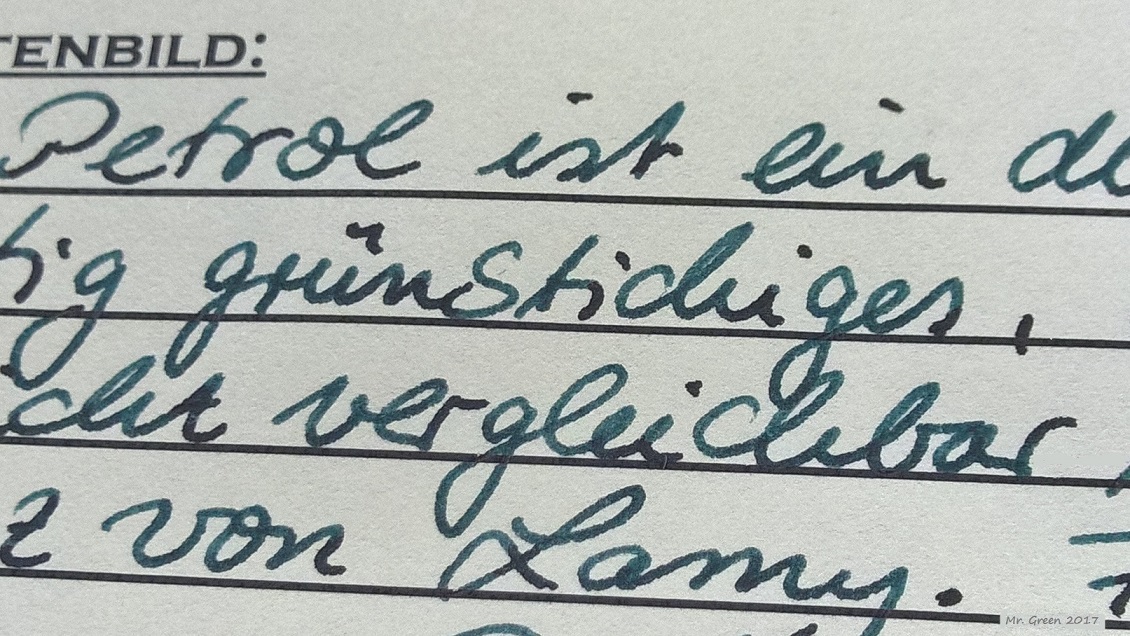 TENBILD:
Petrol ist ein de
tig grünstichiges,
cht vergleichbar
z von Lamy.
Mr. Green 2017